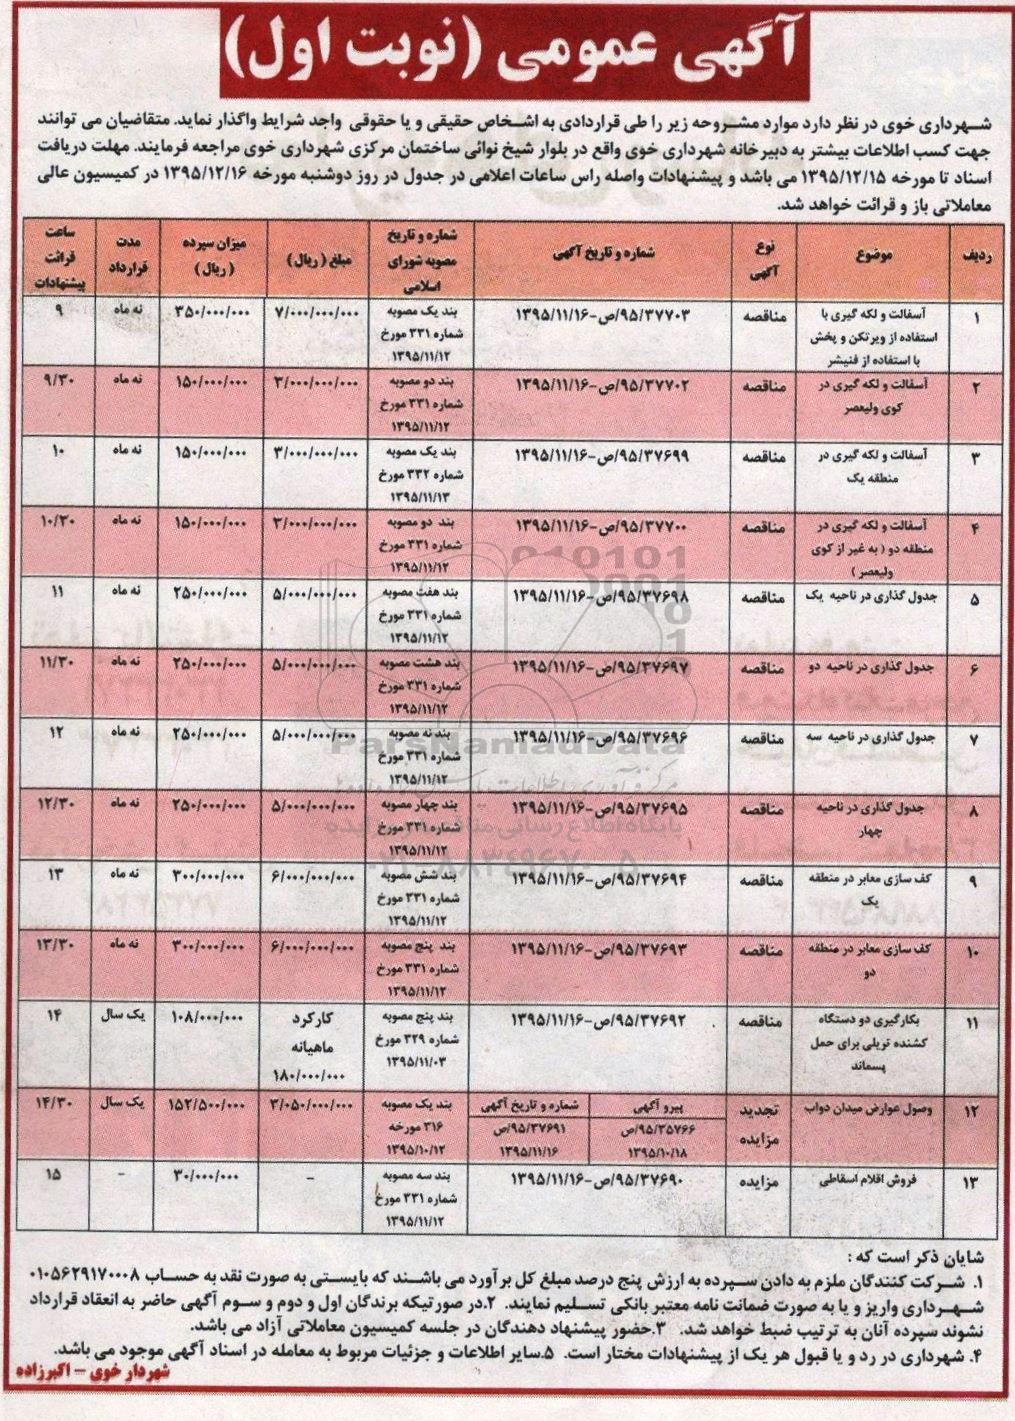 آگهی عمومی (نوبت اول)
شهرداری خوی در نظر دارد موارد مشروحه زیر را طی قراردادی به اشخاص حقیقی و یا حقوقی واجد شرایط واگذار نماید. متقاضیان می توانند
جهت کسب اطلاعات بیشتر به دبیرخانه شهرداری خوی واقع در بلوار شیخ نوائی ساختمان مرکزی شهرداری خوی مراجعه فرمایند. مهلت دریافت
اسناد تا مورخه ۱۳۹۵/۱۲/۱۵ می باشد و پیشنهادات واصله راس ساعات اعلامی در جدول در روز دوشنبه مورخه ۱۳۹۵/۱۲/۱۶ در کمیسیون عالی
معاملاتی باز و قرائت خواهد شد.
ردیف موضوع نوع آگهی شماره و تاریخ آگهی شماره و تاریخ مصوبه شورای اسلامی مبلغ (ریال) میزان سپرده (ریال) مدت قرارداد ساعت قرائت پیشنهادات
۱ آسفالت و لکه گیری با استفاده از ویرتکن و پخش با استفاده از فنیشر مناقصه ۹۵/۳۷۷۰۳/ص-۱۳۹۵/۱۱/۱۶ بند یک مصوبه شماره ۳۳۱ مورخ ۱۳۹۵/۱۱/۱۲ ۷/۰۰۰/۰۰۰/۰۰۰ ۳۵۰/۰۰۰/۰۰۰ نه ماه ۹
۲ آسفالت و لکه گیری در کوی ولیعصر مناقصه ۹۵/۳۷۷۰۲/ص-۱۳۹۵/۱۱/۱۶ بند دو مصوبه شماره ۳۳۱ مورخ ۱۳۹۵/۱۱/۱۲ ۳/۰۰۰/۰۰۰/۰۰۰ ۱۵۰/۰۰۰/۰۰۰ نه ماه ۹/۳۰
۳ آسفالت و لکه گیری در منطقه یک مناقصه ۹۵/۳۷۶۹۹/ص-۱۳۹۵/۱۱/۱۶ بند یک مصوبه شماره ۳۳۲ مورخ ۱۳۹۵/۱۱/۱۳ ۳/۰۰۰/۰۰۰/۰۰۰ ۱۵۰/۰۰۰/۰۰۰ نه ماه ۱۰
۴ آسفالت و لکه گیری در منطقه دو ( به غیر از کوی ولیعصر ) مناقصه ۹۵/۳۷۷۰۰/ص-۱۳۹۵/۱۱/۱۶ بند دو مصوبه شماره ۳۳۱ مورخ ۱۳۹۵/۱۱/۱۲ ۳/۰۰۰/۰۰۰/۰۰۰ ۱۵۰/۰۰۰/۰۰۰ نه ماه ۱۰/۳۰
۵ جدول گذاری در ناحیه یک مناقصه ۹۵/۳۷۶۹۸/ص-۱۳۹۵/۱۱/۱۶ بند هفت مصوبه شماره ۳۳۱ مورخ ۱۳۹۵/۱۱/۱۲ ۵/۰۰۰/۰۰۰/۰۰۰ ۲۵۰/۰۰۰/۰۰۰ نه ماه ۱۱
۶ جدول گذاری در ناحیه دو مناقصه ۹۵/۳۷۶۹۷/ص-۱۳۹۵/۱۱/۱۶ بند هشت مصوبه شماره ۳۳۱ مورخ ۱۳۹۵/۱۱/۱۲ ۵/۰۰۰/۰۰۰/۰۰۰ ۲۵۰/۰۰۰/۰۰۰ نه ماه ۱۱/۳۰
۷ جدول گذاری در ناحیه سه مناقصه ۹۵/۳۷۶۹۶/ص-۱۳۹۵/۱۱/۱۶ بند نه مصوبه شماره ۳۳۱ مورخ ۱۳۹۵/۱۱/۱۲ ۵/۰۰۰/۰۰۰/۰۰۰ ۲۵۰/۰۰۰/۰۰۰ نه ماه ۱۲
۸ جدول گذاری در ناحیه چهار مناقصه ۹۵/۳۷۶۹۵/ص-۱۳۹۵/۱۱/۱۶ بند چهار مصوبه شماره ۳۳۱ مورخ ۱۳۹۵/۱۱/۱۲ ۵/۰۰۰/۰۰۰/۰۰۰ ۲۵۰/۰۰۰/۰۰۰ نه ماه ۱۲/۳۰
۹ کف سازی معابر در منطقه یک مناقصه ۹۵/۳۷۶۹۴/ص-۱۳۹۵/۱۱/۱۶ بند شش مصوبه شماره ۳۳۱ مورخ ۱۳۹۵/۱۱/۱۲ ۶/۰۰۰/۰۰۰/۰۰۰ ۳۰۰/۰۰۰/۰۰۰ نه ماه ۱۳
۱۰ کف سازی معابر در منطقه دو مناقصه ۹۵/۳۷۶۹۳/ص-۱۳۹۵/۱۱/۱۶ بند پنج مصوبه شماره ۳۳۱ مورخ ۱۳۹۵/۱۱/۱۲ ۶/۰۰۰/۰۰۰/۰۰۰ ۳۰۰/۰۰۰/۰۰۰ نه ماه ۱۳/۳۰
۱۱ بکارگیری دو دستگاه کشنده تریلی برای حمل پسماند مناقصه ۹۵/۳۷۶۹۲/ص-۱۳۹۵/۱۱/۱۶ بند پنج مصوبه شماره ۳۲۹ مورخ ۱۳۹۵/۱۱/۰۳ کارکرد ماهیانه ۱۸۰/۰۰۰/۰۰۰ ۱۰۸/۰۰۰/۰۰۰ یک سال ۱۴
۱۲ وصول عوارض میدان دواب تجدید مزایده پیرو آگهی ۹۵/۳۵۷۶۶/ص ۱۳۹۵/۱۰/۱۸ شماره و تاریخ آگهی ۹۵/۳۷۶۹۱/ص ۱۳۹۵/۱۱/۱۶ بند یک مصوبه ۳۱۶ مورخه ۱۳۹۵/۱۰/۱۲ ۳/۰۵۰/۰۰۰/۰۰۰ ۱۵۲/۵۰۰/۰۰۰ یک سال ۱۴/۳۰
۱۳ فروش اقلام اسقاطی مزایده ۹۵/۳۷۶۹۰/ص-۱۳۹۵/۱۱/۱۶ بند سه مصوبه شماره ۳۳۱ مورخ ۱۳۹۵/۱۱/۱۲ - ۳۰/۰۰۰/۰۰۰ - ۱۵
ParsNamadData
پایگاه اطلاع رسانی مناقصه و مزایده
شایان ذکر است که :
۱. شرکت کنندگان ملزم به دادن سپرده به ارزش پنج درصد مبلغ کل برآورد می باشند که بایستی به صورت نقد به حساب ۰۱۰۵۶۲۹۱۷۰۰۰۸
شهرداری واریز و یا به صورت ضمانت نامه معتبر بانکی تسلیم نمایند. ۲.در صورتیکه برندگان اول و دوم و سوم آگهی حاضر به انعقاد قرارداد
نشوند سپرده آنان به ترتیب ضبط خواهد شد. ۳.حضور پیشنهاد دهندگان در جلسه کمیسیون معاملاتی آزاد می باشد.
۴. شهرداری در رد و یا قبول هر یک از پیشنهادات مختار است. ۵.سایر اطلاعات و جزئیات مربوط به معامله در اسناد آگهی موجود می باشد.
شهردار خوی - اکبرزاده